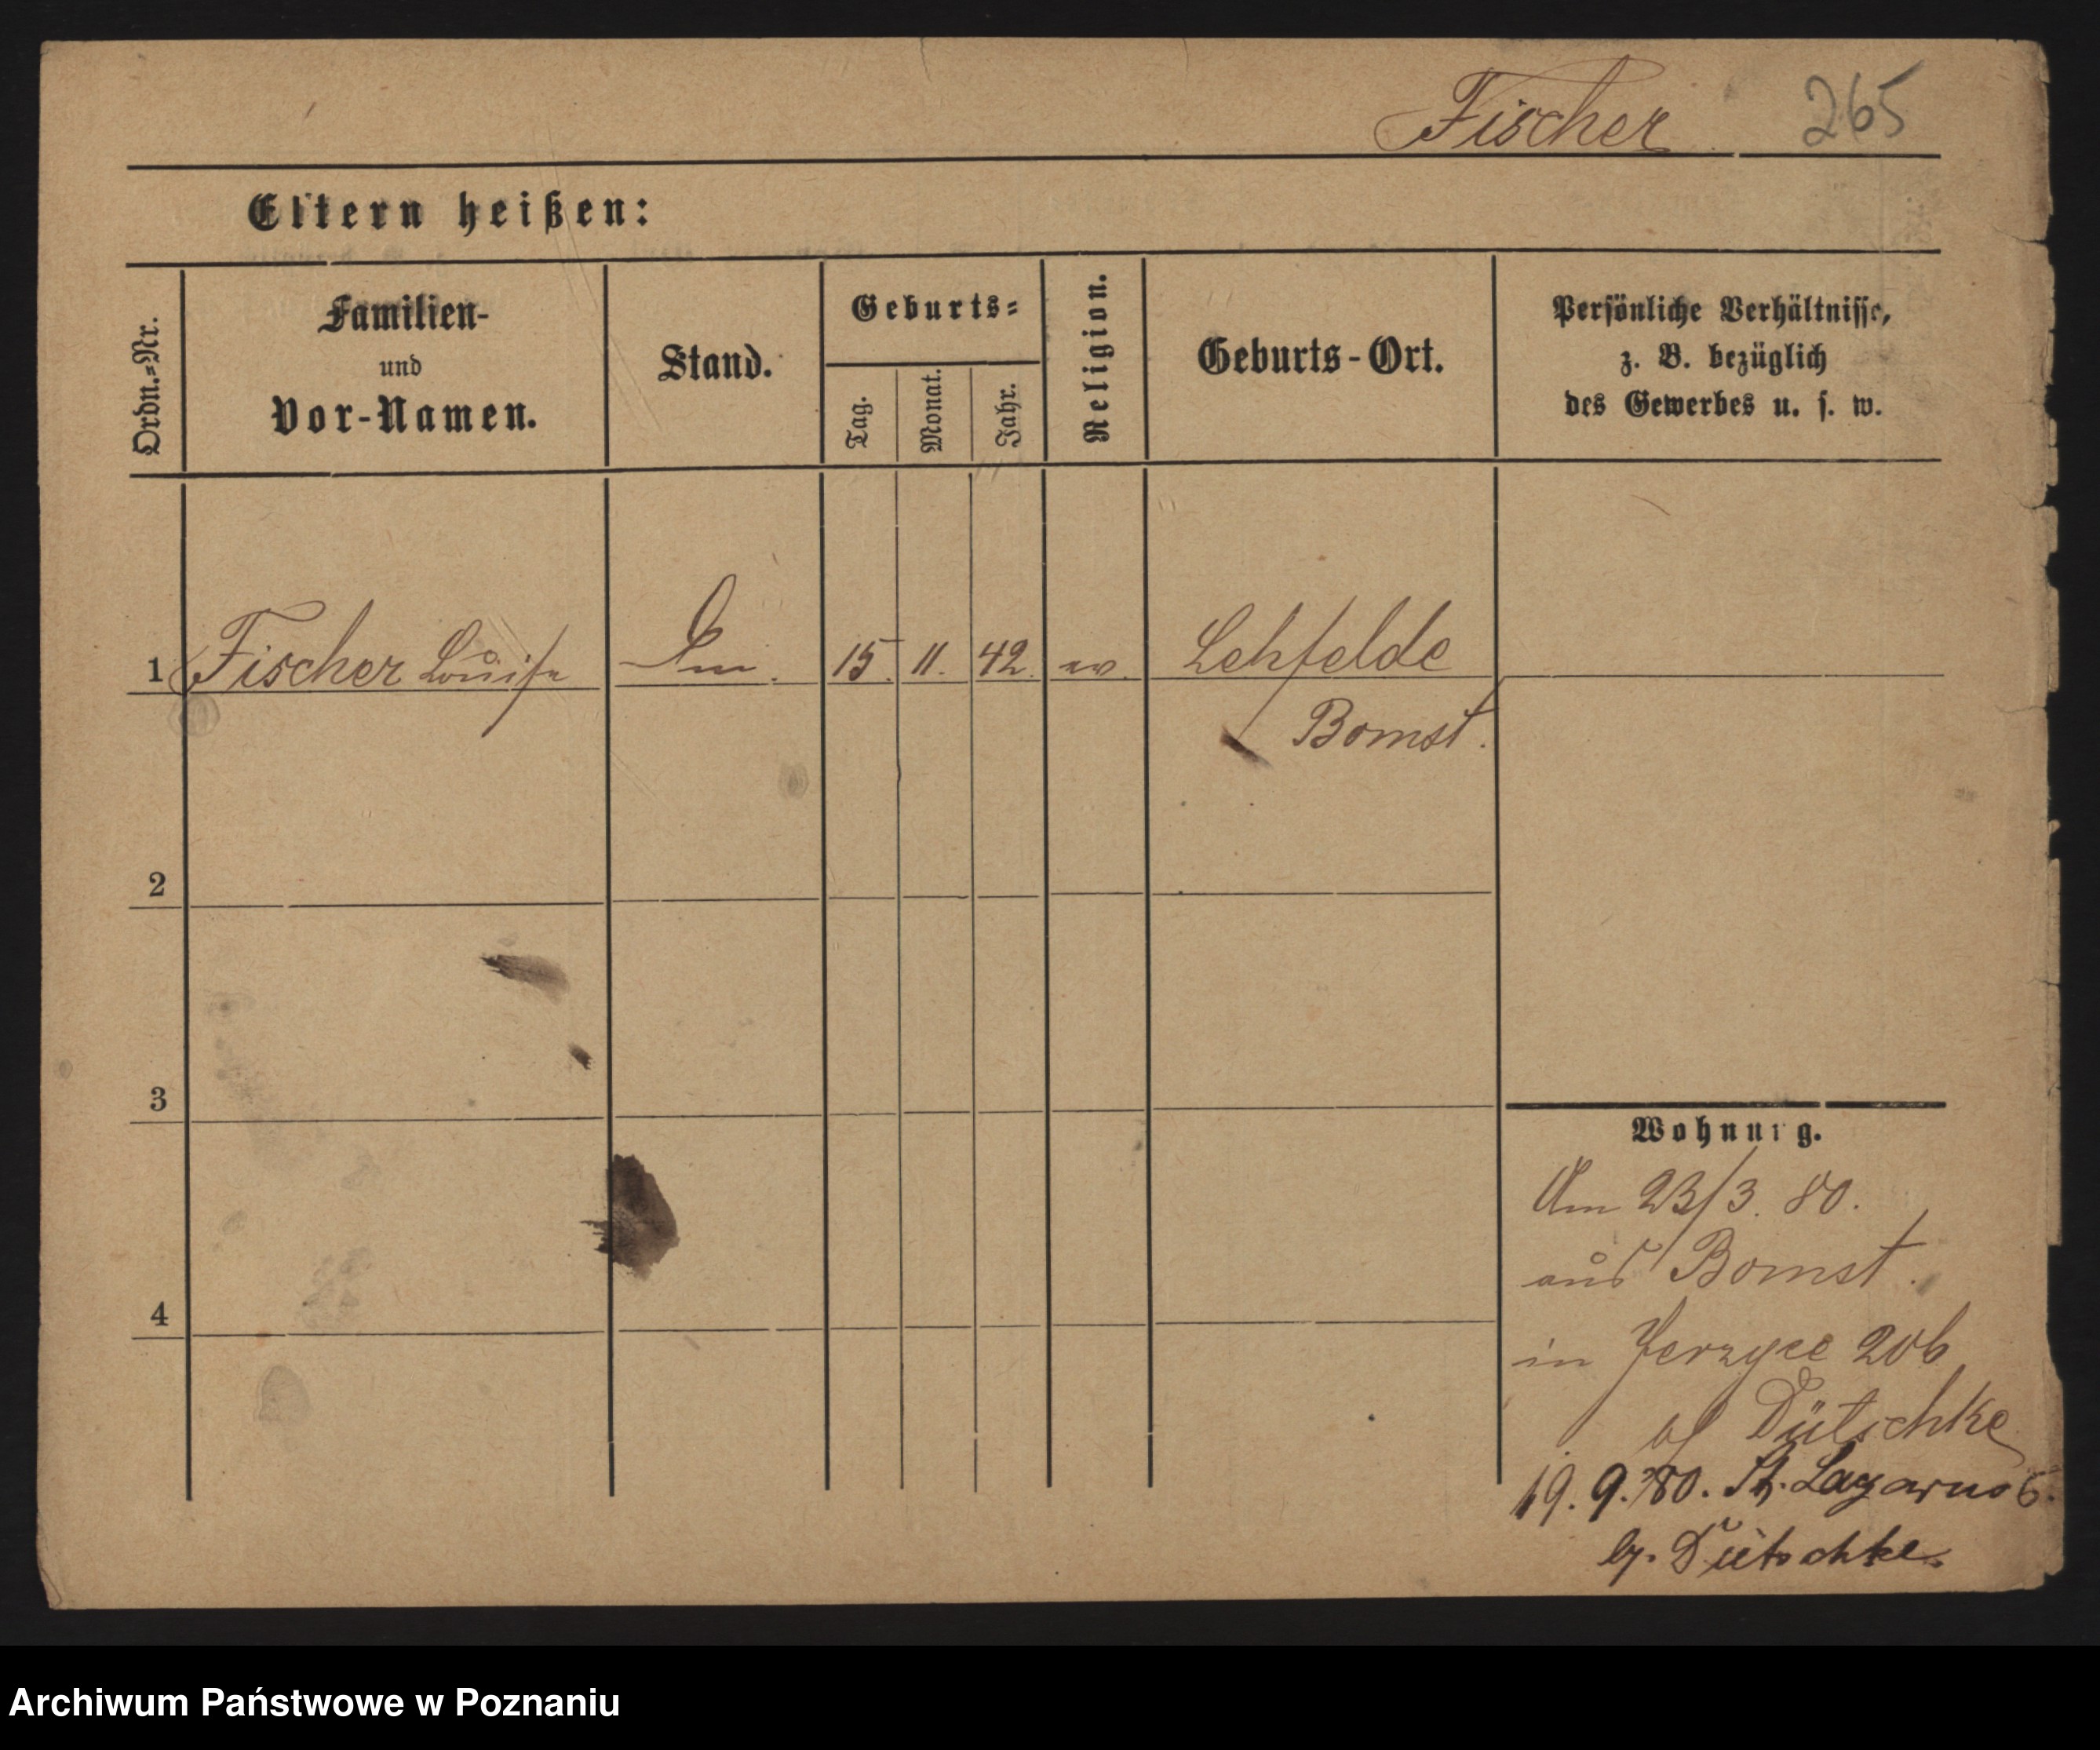 Fischer 265
Eltern heißen:
Ordn.=Nr.
Familien-
und
Vor-Namen.
Stand.
Geburts=
Tag.
Monat.
Jahr.
Religion.
Geburts-Ort.
Persönliche Verhältnisse,
z. B. bezüglich
des Gewerbes u. s. w.
1 Fischer Louise 15. 11. 42. ev. Lehfelde
Bomst.
2
3
4
Wohnung.
Am 23/3. 80.
aus Bomst.
in Jerzyce 206
Dütschke
19. 9. 80. St. Lazarus 6.
b. Dütschke
Archiwum Państwowe w Poznaniu